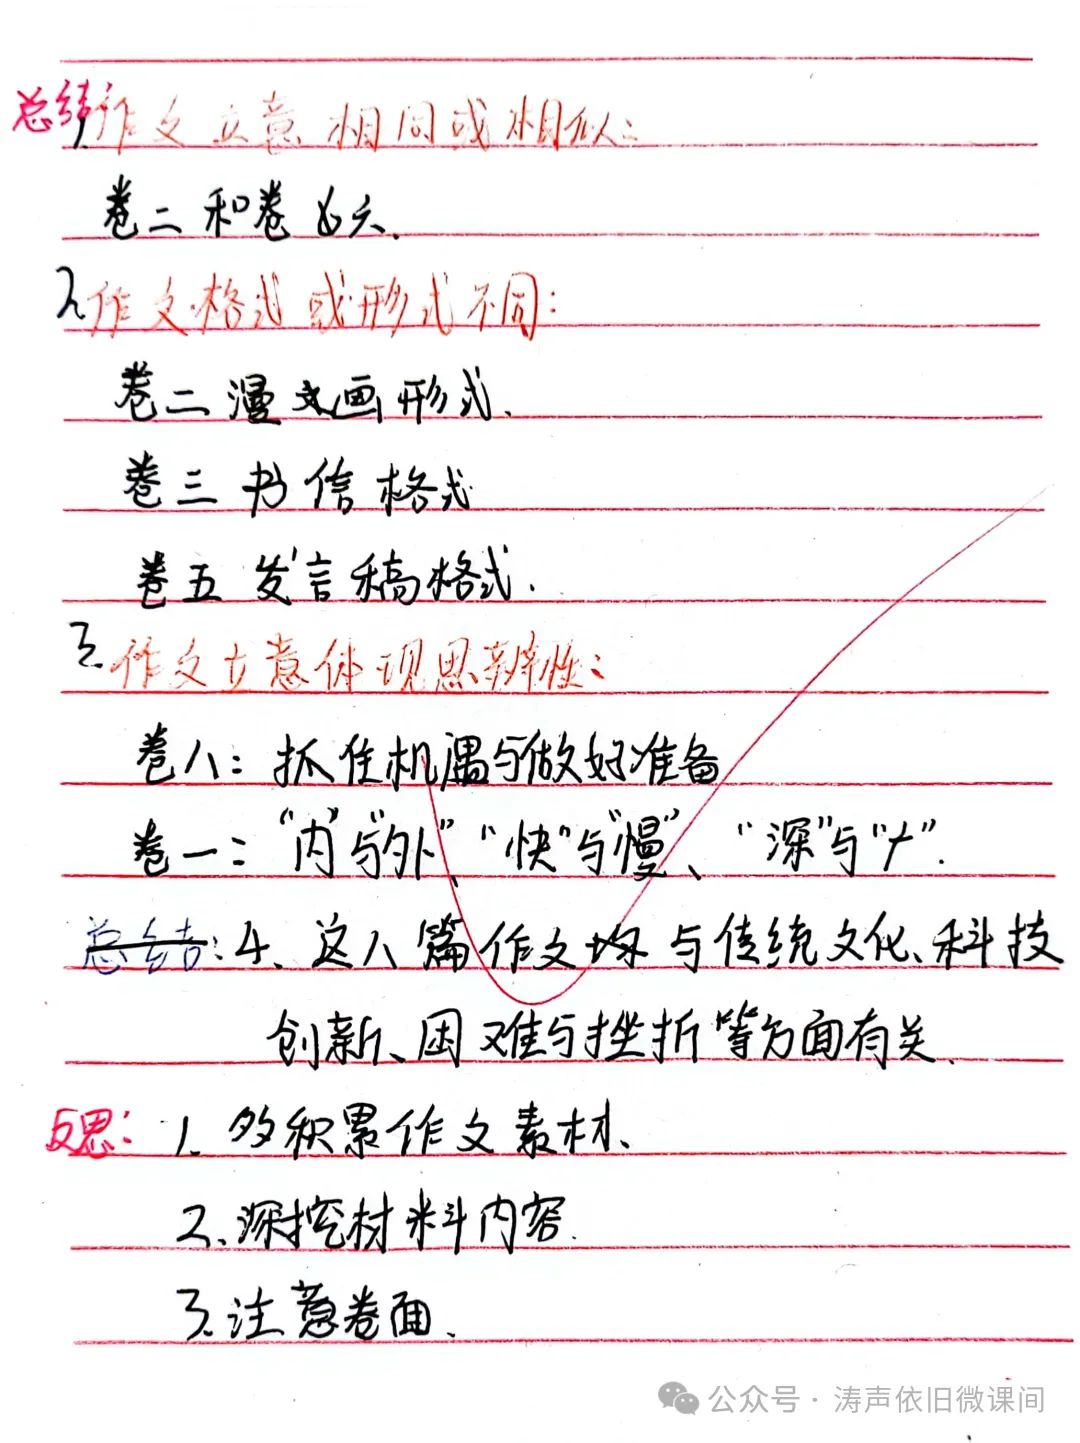 总结:1.作文立意相同或相似:
卷二和卷六.
2.作文格式或形式不同:
卷二漫画形式.
卷三书信格式
卷五发言稿格式.
3.作文立意体现思辨性:
卷八:抓住机遇与做好准备
卷一:“内”与“外”、“快”与“慢”、“深”与“广”.
总结:4、这八篇作文均与传统文化、科技
创新、困难与挫折等方面有关.
反思: 1.多积累作文素材.
2.深挖材料内容.
3.注意卷面.
公众号·涛声依旧微课间